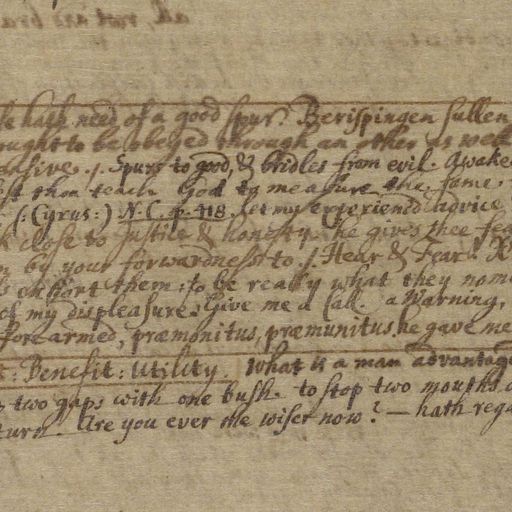 hath need of a good spur. Berispingen sullen
ought to be obeyed through an other as well
. Spurs to good, & bridles from evil. Awake
thou teach God to measure the same.
(: Cyrus :) N. C. p. 118. let my experienced advice
close to Justice & honesty. he gives thee
by your forwardness to . Hear & Fear.
effort them; to be really what they
of my displeasure. Give me a Call. a Warning,
fore armed, præmonitus, præmunitus. he gave me
: Benefit: Utility. What is a man advantage
two gaps with one bush. to stop two mouths
turn. Are you ever the wiser now? — hath rega